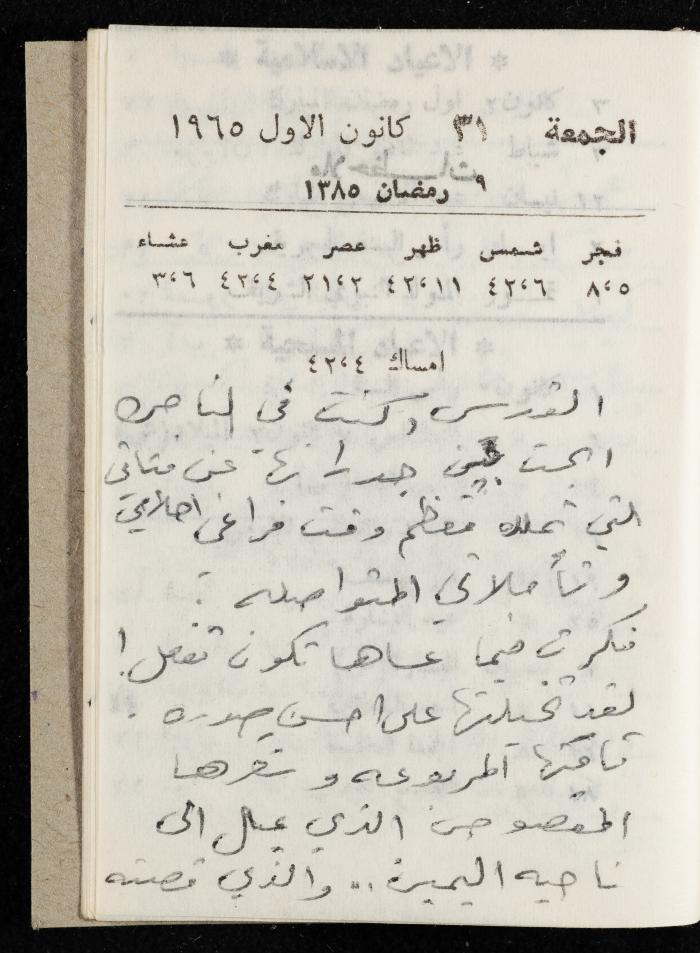 الجمعة ٣١ كانون الاول ١٩٦٥
٩ رمضان ١٣٨٥
فجر شمس ظهر عصر مغرب عشاء
٨،٥ ٤٢،٦ ٤٢،١١ ٢١،٢ ٤٢،٤ ٣،٦
امساك ٤٢،٤
القدس وكنت في الناصره
ابحث بين جدرانها عن فتاتي
التي تملاء معظم وقت فراغي احلامي
وتأملاتي المتواصله .
فكرت فيما عساها تكون تفعل !
لقد تخيلتها على احسن صوره .
قامتها المربوعه وشعرها
المقصوص الذي يميل الى
ناحيه اليمين .. والذي قصته